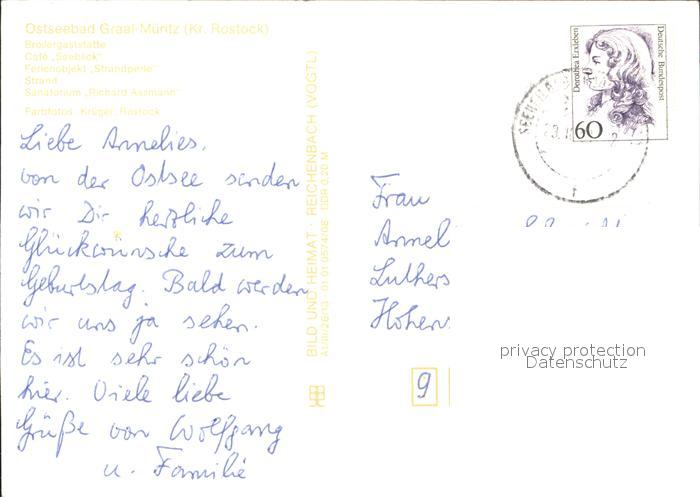 Ostseebad Graal-Müritz (Kr. Rostock)
Broilergaststätte
Café „Seeblick"
Ferienobjekt „Strandperle"
Strand
Sanatorium „Richard Assmann"
Farbfotos: Krüger, Rostock
Liebe Annelies,
von der Ostsee senden
wir Dir herzliche
Glückwünsche zum
Geburtstag. Bald werden
wir uns ja sehen.
Es ist sehr schön
hier. Viele liebe
Grüße von Wolfgang
u. Familie
BILD UND HEIMAT · REICHENBACH (VOGTL)
DDR 0,20 M
Dorothea Erxleben
Deutsche Bundespost
60
Frau
Annel
Luthers
Hohen
9
privacy protection
Datenschutz